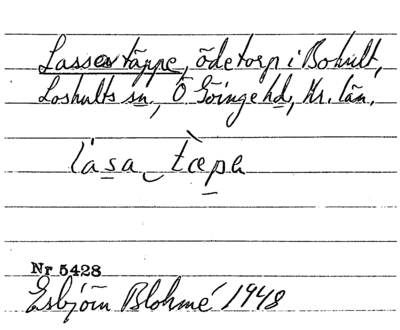 Lasses täppe, ödetorp i Bohult,
Loshults sn, Ö Göinge hd, Kr. län.
lása tæpa
Nr 5428
Esbjörn Blohmé 1948